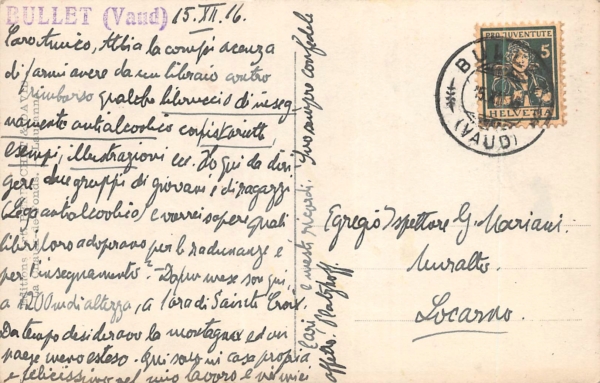 BULLET (Vaud) 15.XII.16.
Caro Amico, Abbia la compiacenza
di farmi avere da un libraio contro
rimborso qualche libruccio di inseg
namento antialcoolico con storielle,
esempi, illustrazioni ecc. Ho qui da diri
gere due gruppi di giovani e di ragazzi
(Lega antialcoolica) e vorrei sapere quali
libri loro adoperano per le radunanze e
per l'insegnamento? - Da un mese son qui,
a 1200 m di altezza, a 1 ora di Sainte Croix.
Da tempo desideravo la montagna ed un
paese meno esteso. Qui sono in casa propria
e felicissimo nel mio lavoro e nei miei
Cari e mesti ricordi. Suo sempre confedele
Egregio Ispettore G. Mariani.
Muralto.
Locarno.
PRO JUVENTUTE
5
HELVETIA
BULLET
(VAUD)